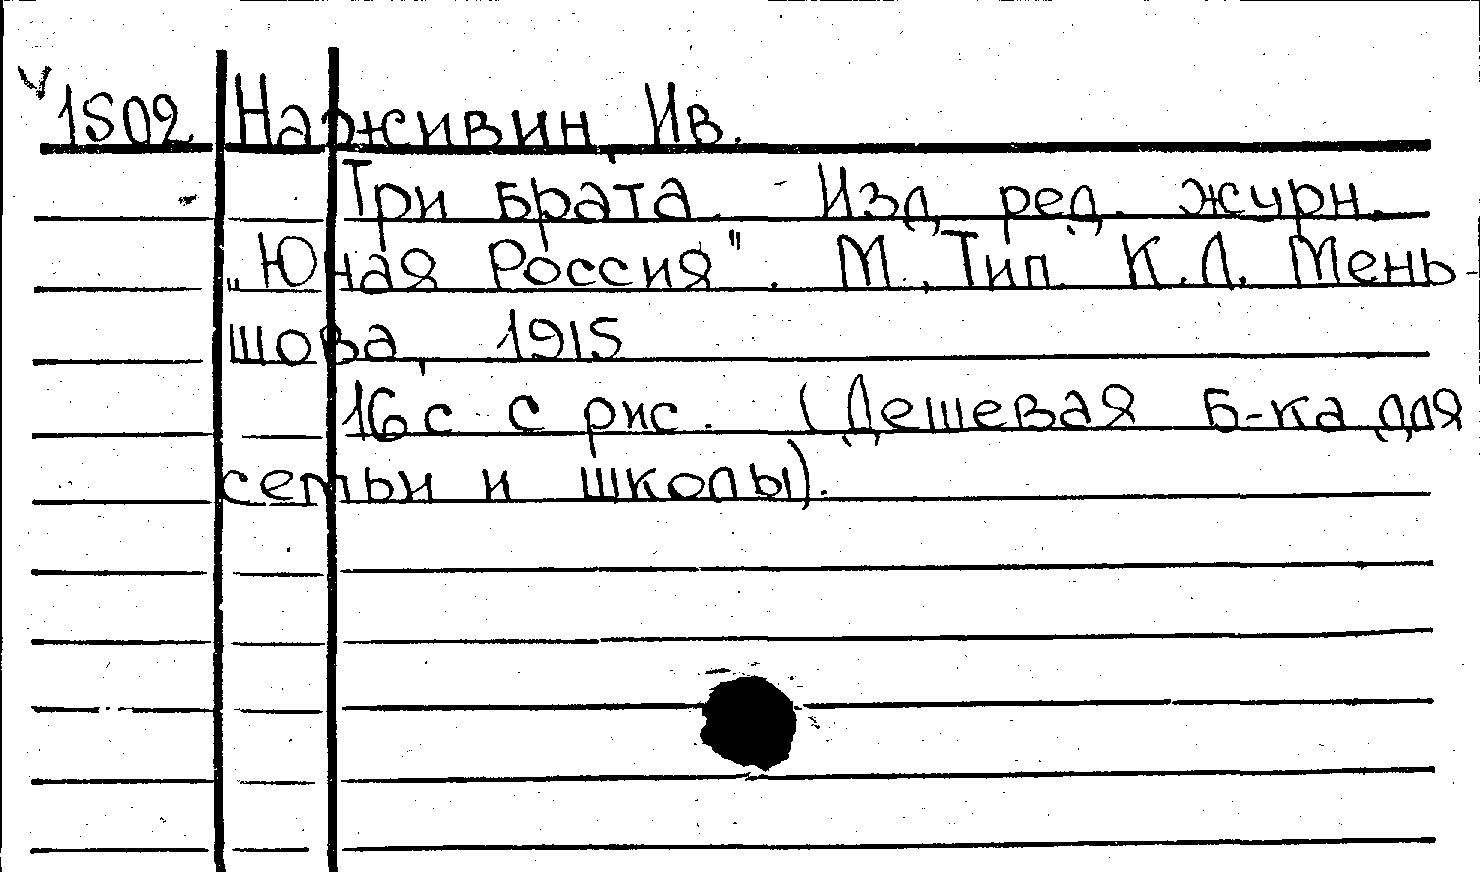 1502 Наживин, Ив.
Три брата. - Изд. ред. журн.
„Юная Россия". М., Тип. К.Л. Мень-
шова, 1915
16 с с рис. (Дешевая б-ка для
семьи и школы).